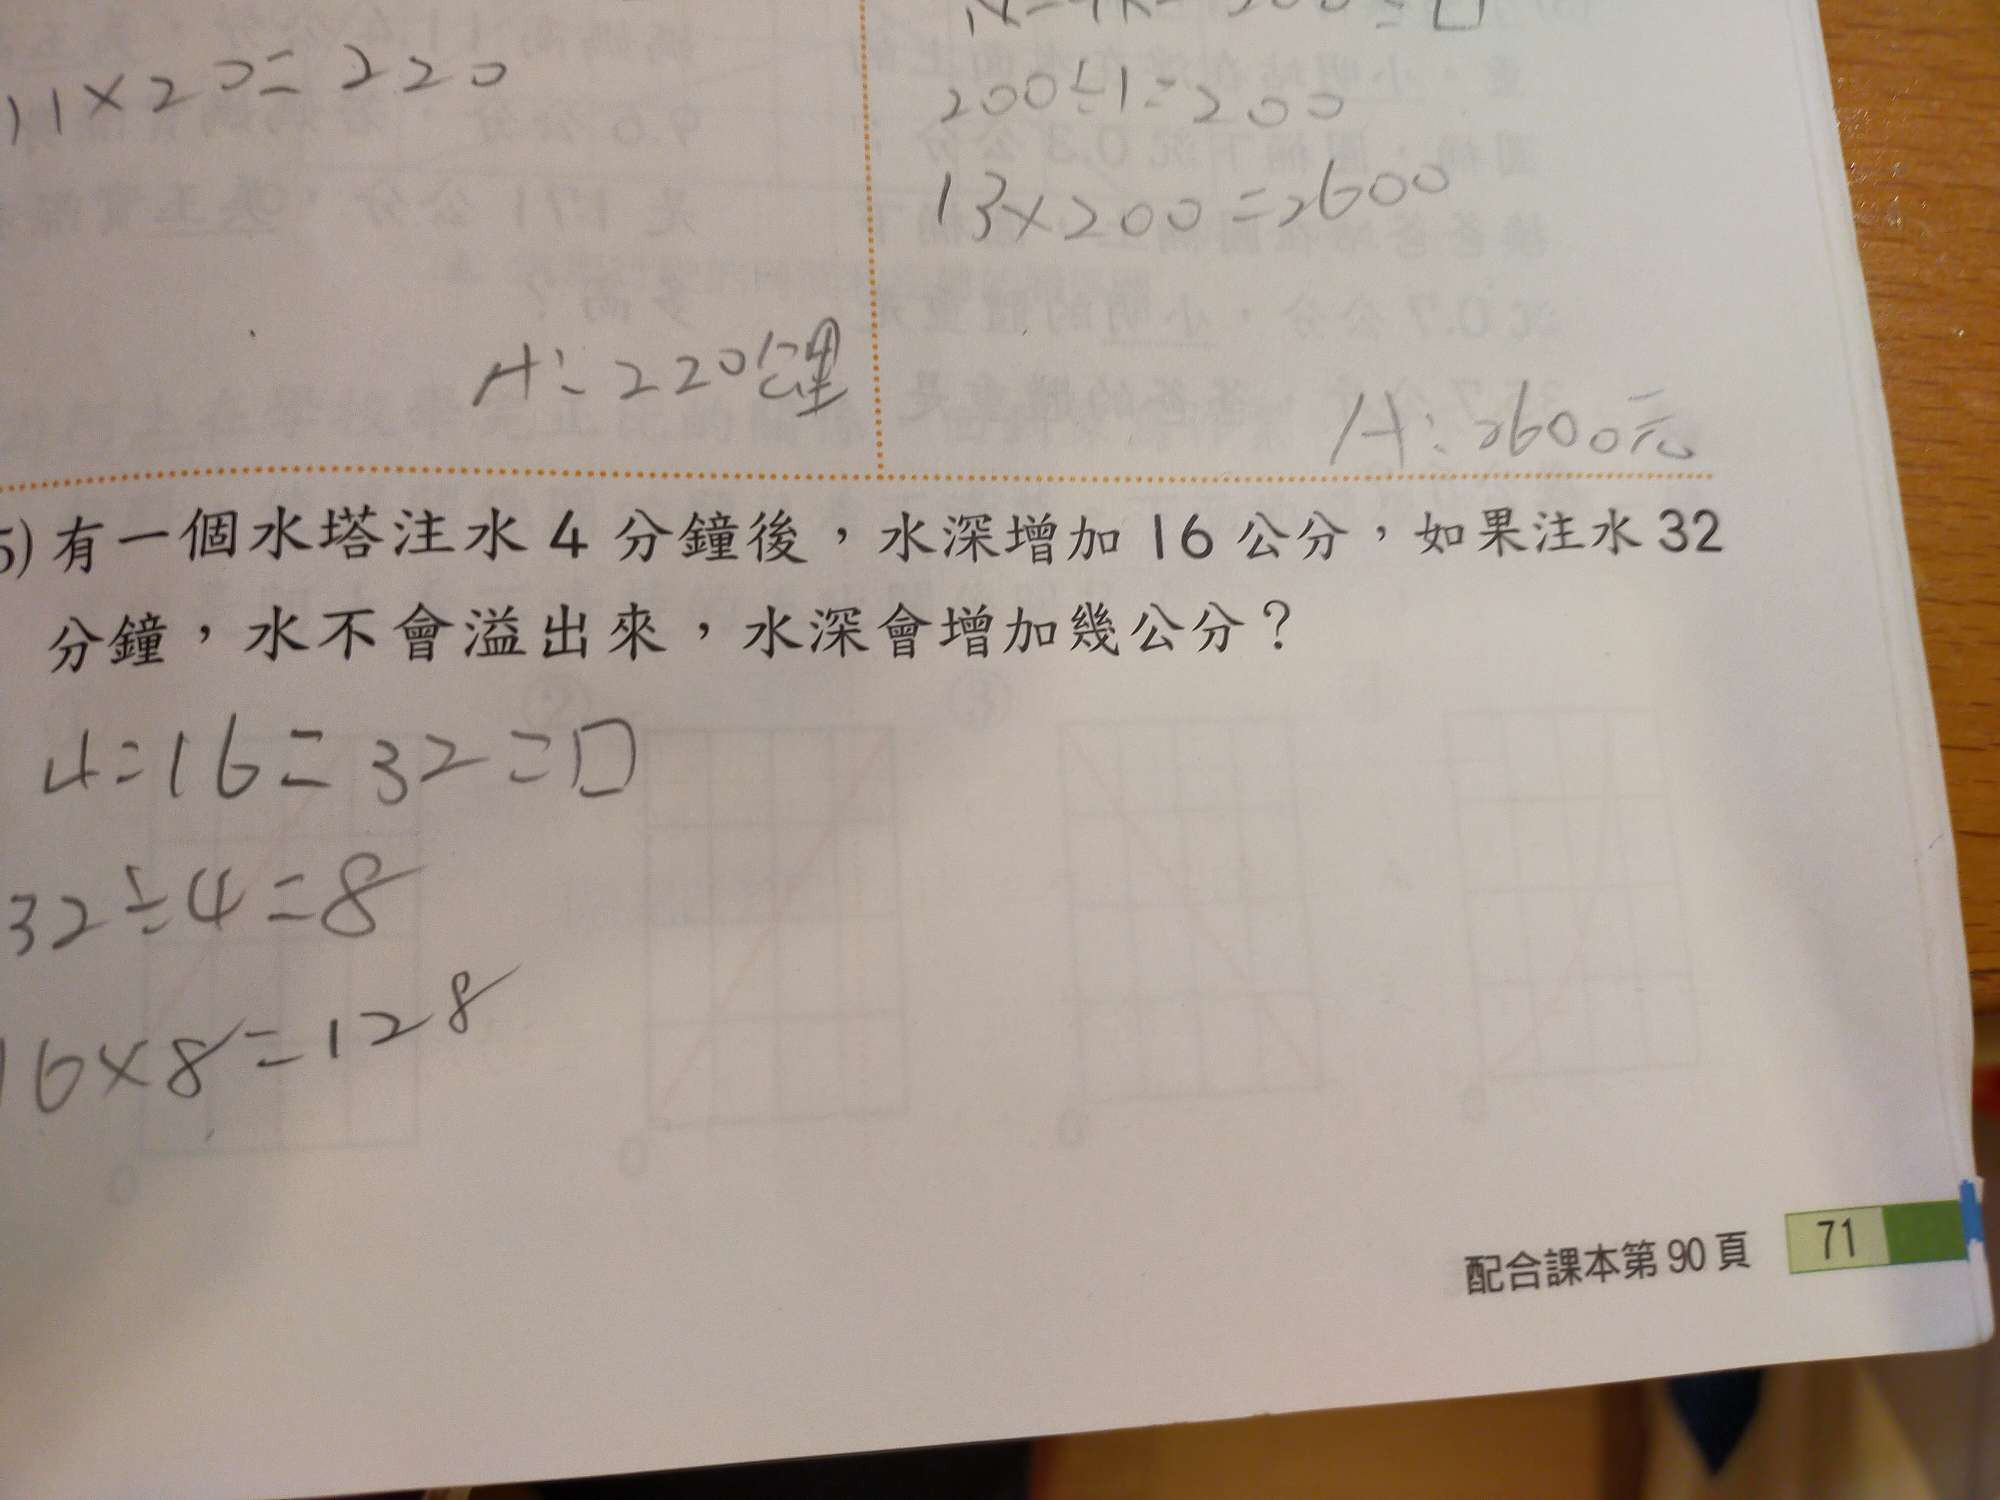 11×20=220
A:220公里
200÷1=200
13×200=2600
A:2600元
5)有一個水塔注水4分鐘後,水深增加16公分,如果注水32
分鐘,水不會溢出來,水深會增加幾公分?
4=16=32=□
32÷4=8
16×8=128
配合課本第90頁 71